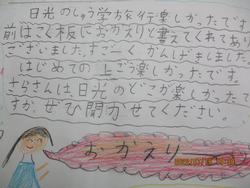 日光のしゅう学旅行楽しかったです
前はこく板におかえりと書えてくれてあり
ございました。すごーくがんばしました。
はじめての上ごう楽しかったです。
さらさんは日光のどこが楽しかったです
か。ぜひ聞かせてください。
おかえり